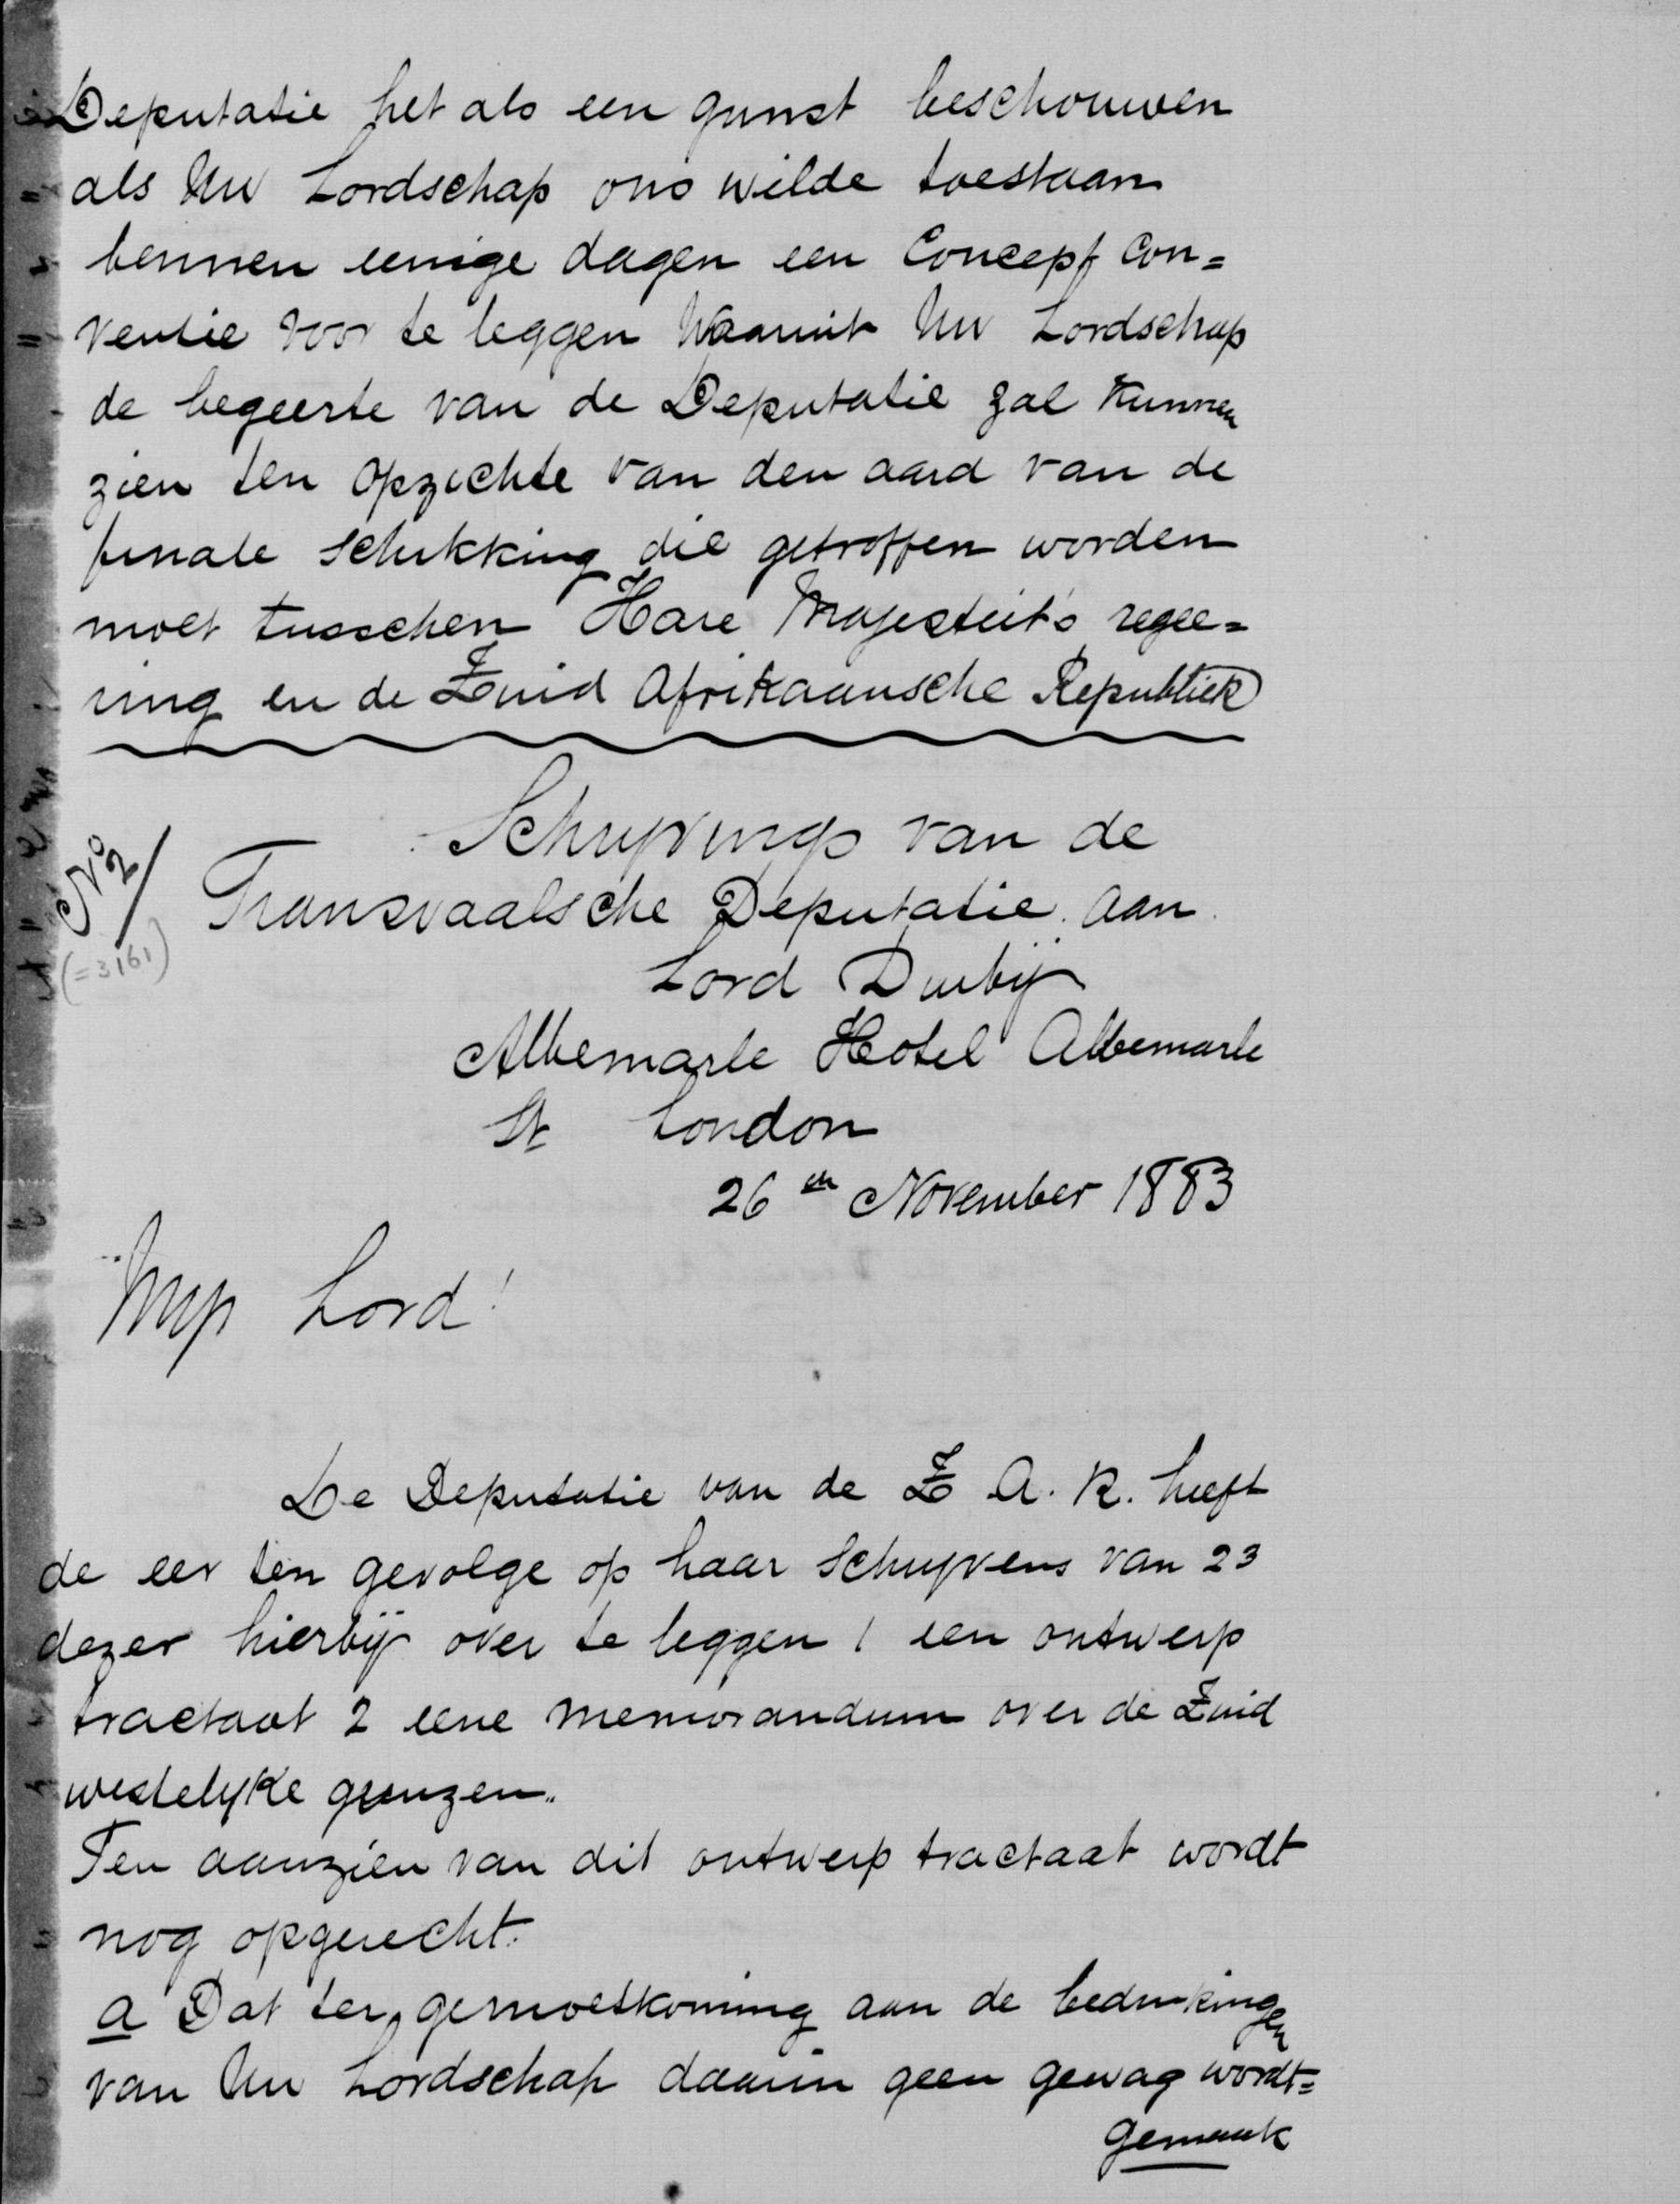 Deputatie het als een gunst beschouwen
als Uw Lordschap ons wilde toestaan
bennen eenige dagen een Concept Con=
ventie voor te leggen Waaruit Uw Lordschap
de begeerte van de Deputatie zal Kunnen
zien ten opzichte van den aard van de
finale schikking die getroffen worden
moet tusschen Hare Majesteit's regee=
ring en de Zuid Afrikaansche Republiek
Schryvings van de
No 2/
Transvaalsche Deputatie aan
(=3161)
Lord Durbij
Albemarle Hotel Albemarle
St London
26 en November 1883
Myn Lord!
De Deputatie van de Z A. R. heeft
de eer ten gevolge op haar Schryvens van 23
dezer hierbij over te leggen 1 een ontwerp
tractaat 2 eene memorandum over de Zuid
westelyke grenzen.
Ten aanzien van dit ontwerp tractaat wordt
nog opgerecht.
a Dat ter gemoetkoming aan de bedenkingen
van Uw Lordschap daarin geen gewag wordt=
gemaak